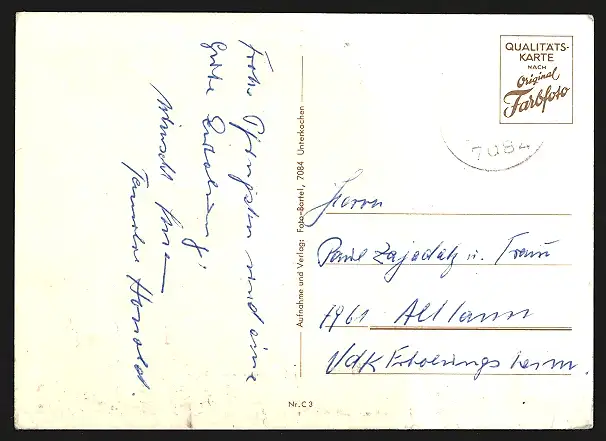 Frohe Pfingsten und eine
gute Erholung!
wünscht Ihnen
Familie Honold
Aufnahme und Verlag: Foto-Bartel, 7084 Unterkochen
QUALITÄTS-
KARTE
NACH
Original
Farbfoto
7084
Herrn
Paul Zajadatz u. Frau
7961 Altann
VdK Erholungsheim.
Nr. C 3